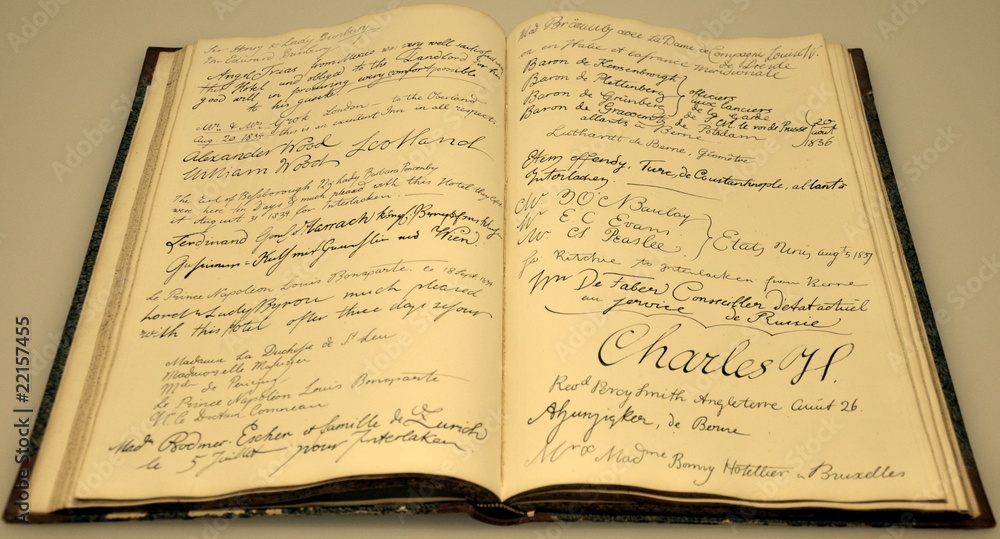 Sir Henry & Lady Bunbury
Angel Frias from Mexico very well satisfied with
this Hotel and obliged to the Landlord for his
good will in procuring every comfort possible
to his guests
Mr. & Mrs Grok London – to the Oberland
Aug. 20 1834 this is an excellent Inn in all respects
Alexander Wood Scotland
William Wood
The Earl of Bessborough & Lady Barbara Ponsonby
were here two Days & much pleased with this Hotel they
at August 21 1834 for Interlaken
Ferdinand Harrach
Wien
Le Prince Napoleon Louis Bonaparte. le 18 Sept 1834
Lord & Lady Byron much pleased
with this Hotel after three days sejour
Madame La Duchesse de St Leu
Madmoiselle
Md. de
Le Prince Napoléon Louis Bonaparte
Mr. le Docteur Conneau
Madn Bodmer-Escher et famille de Zurich
le 5 Juillet pour Interlaken
avec La Dame de Compagnie Louise W.
de Dresde
en Italie et la france Meridionale
Baron de
Baron de Plettenberg
Baron de Grünberg
Baron de
officiers
aux lanciers
de la Garde
de S. M. le roi de Prusse
de Potsdam
20
août
1836
allants à Berne
Luthardt de Berne, Geomètre
Etem effendy, Turc, de Constantinople, allant à
Interlachen
Mr. D. O'C Barclay
Mr E C Evans
Mr Ch Peaslee
Etats Unis, aug 5. 1837
Ritchie to Interlacken from Berne
De Faber Conseiller d'etat actuel
au service de Russie
Charles H.
Revd Percy Smith Angleterre Août 26.
de Berne
Mr & Madme Bonny Hotellier à Bruxelles
Adobe Stock | #22157455
Adobe Stock